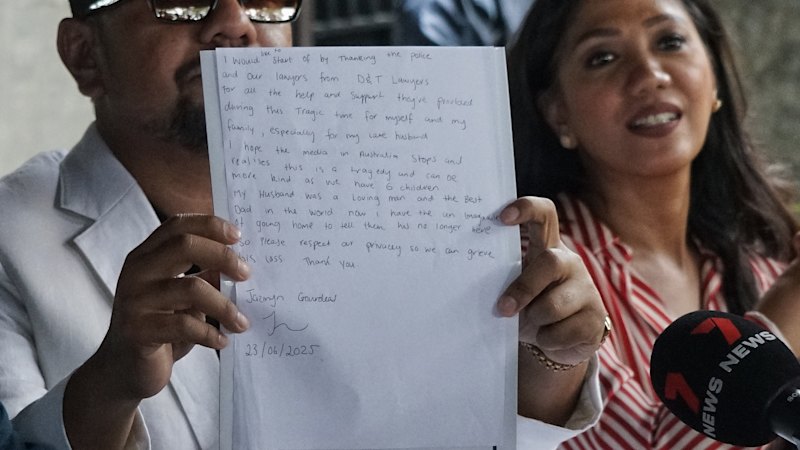 like to
I would start of by Thanking the police
and our lawyers from D&T Lawyers
for all the help and support they've provided
during this Tragic time for myself and my
family, especially for my late husband
I hope the media in Australia stops and
realises this is a tragedy and can be
more kind as we have 6 children
My Husband was a loving man and the Best
Dad in the world now i have the un
of going home to tell them has no longer here
So please respect our privacy so we can grieve
this loss. Thank you
Jazmyn Gourdeas
23/06/2025
7 NEWS
7 NEWS